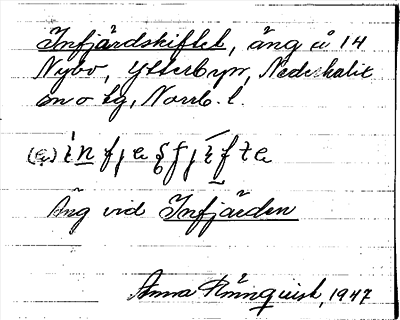 Infjärdskiftet, äng å 14
Nybo, Ytterbyn, Nederkalix
sn o tg, Norrb. l.
Äng vid Infjärden
Anna Rönnquist, 1947